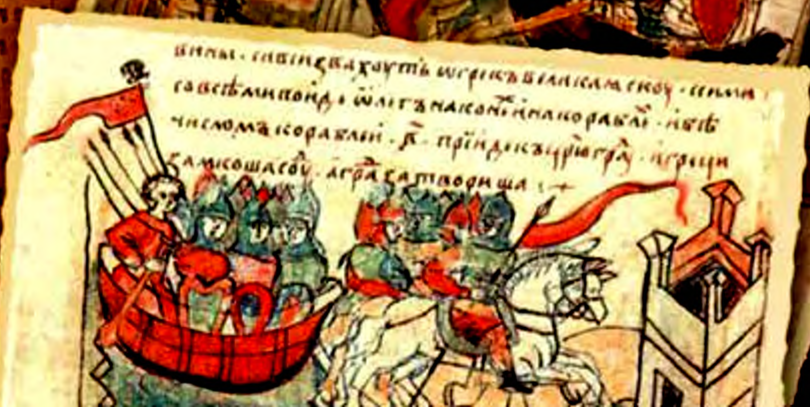 вины · си вси звахоуть ѿ грекъ великаꙗ скоуѳ · с сими
со всѣми поиде ѡлегъ на кони и на корабли · и бѣ
числомъ кораблеи · в҃ · прїиде къ црюгра · и греци
замкоша соу · а гра затвориша